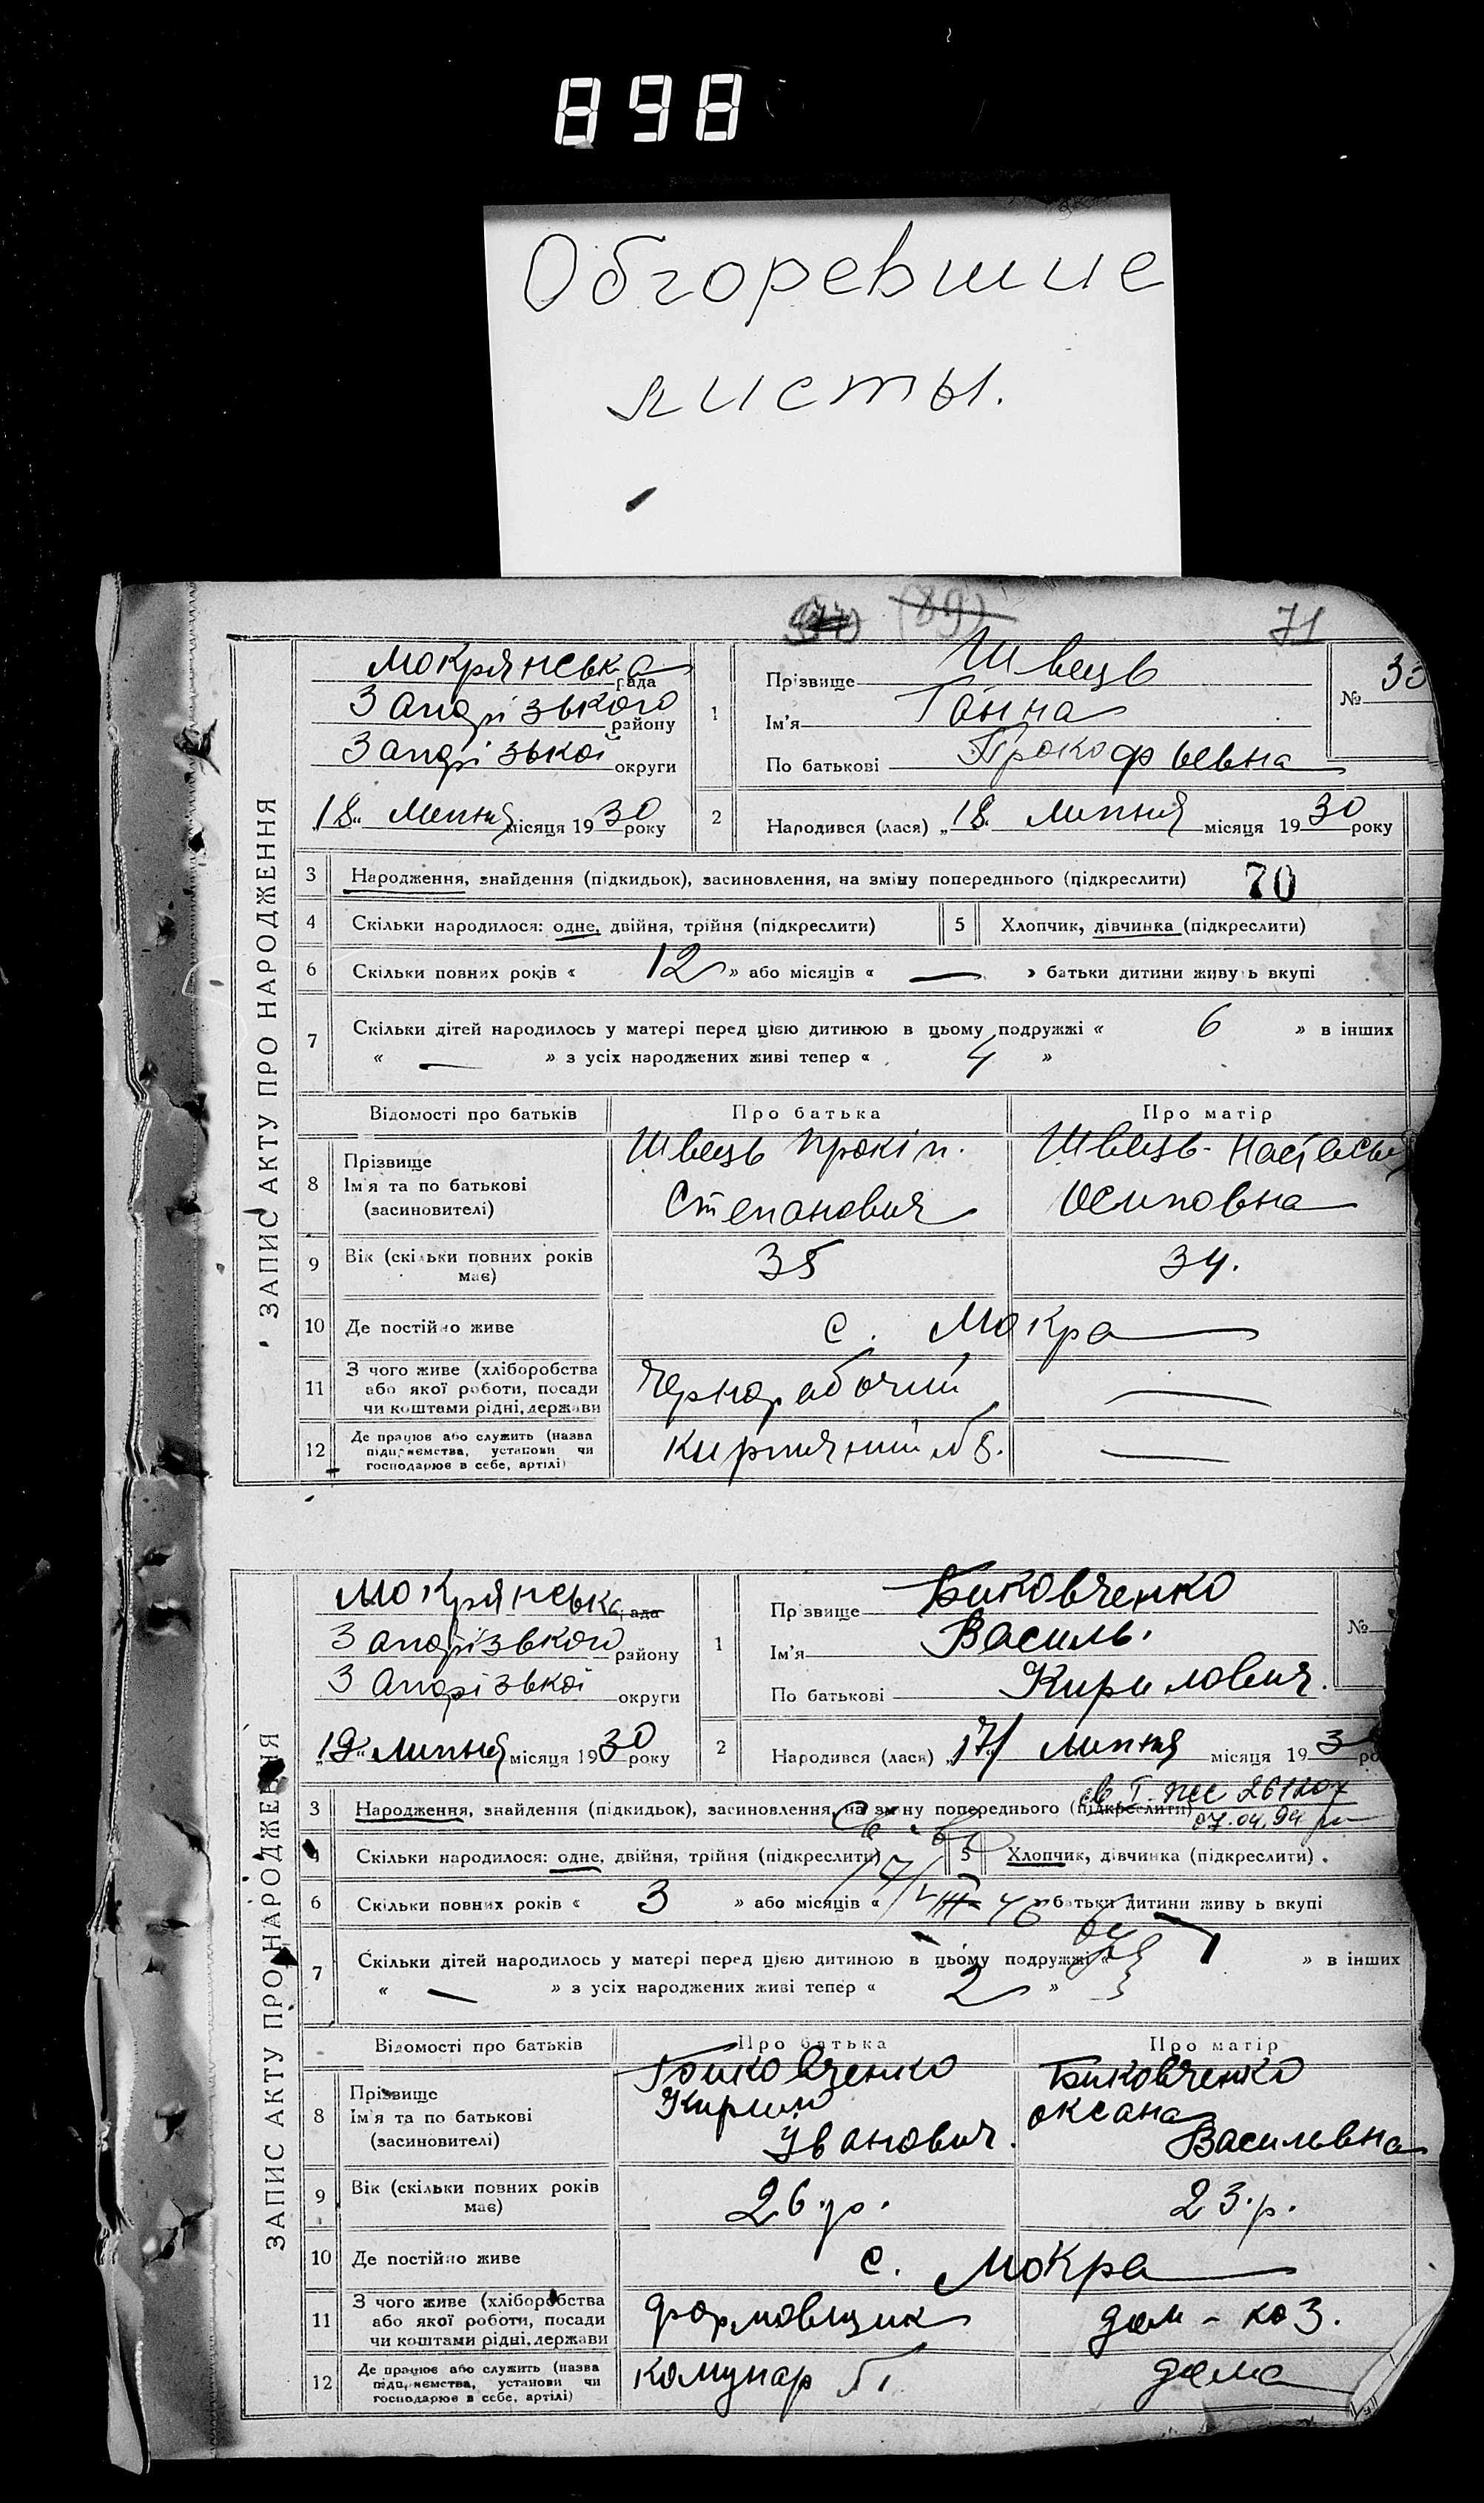 898
Обгоревшие
листы.
(89)
71
ЗАПИС АКТУ ПРО НАРОДЖЕННЯ
Мокрянська рада
Запорізького району
Запорізької округи
„18“ Липня місяця 1930 року
1
Прізвище Швець
Ім'я Ганна
По батькові Прокофьевна
№ 33
2
Народився (лася) „18“ липня місяця 1930 року
3 Народження, знайдення (підкидьок), засиновлення, на зміну попереднього (підкреслити) 70
4 Скільки народилося: одне, двійня, трійня (підкреслити) 5 Хлопчик, дівчинка (підкреслити)
6 Скільки повних років « 12 » або місяців « — » батьки дитини живуть вкупі
7 Скільки дітей народилось у матері перед цією дитиною в цьому подружжі « 6 » в інших
« — » з усіх народжених живі тепер « 4 »
Відомості про батьків Про батька Про матір
8 Прізвище Ім'я та по батькові (засиновителі)
Швець Прокіп.
Степанович
Швець- Настасья
Осиповна
9 Вік (скільки повних років має) 35 34.
10 Де постійно живе с. Мокра
11 З чого живе (хліборобства або якої роботи, посади чи коштами рідні, держави
Чернорабочий —
12 Де працює або служить (назва підприємства, установи чи господарює в себе, артілі)
Кирпичний —
ЗАПИС АКТУ ПРО НАРОДЖЕННЯ
Мокрянська рада
Запорізького району
Запорізької округи
„19“ липня місяця 1930 року
1
Прізвище Биковченко
Ім'я Василь.
По батькові Кирилович.
№
2
Народився (лася) „17“ липня місяця 193
3 Народження, знайдення (підкидьок), засиновлення, на зміну попереднього (підкреслити)
07.04.94
4 Скільки народилося: одне, двійня, трійня (підкреслити) 5 Хлопчик, дівчинка (підкреслити)
6 Скільки повних років « 3 » або місяців « » батьки дитини живуть вкупі
7 Скільки дітей народилось у матері перед цією дитиною в цьому подружжі « 1 » в інших
« — » з усіх народжених живі тепер « 2 »
Відомості про батьків Про батька Про матір
8 Прізвище Ім'я та по батькові (засиновителі)
Биковченко
Кирило
Іванович.
Биковченко
Оксана
Васильвна
9 Вік (скільки повних років має) 26 р. 23.р.
10 Де постійно живе с. Мокра
11 З чого живе (хліборобства або якої роботи, посади чи коштами рідні, держави
формовщик дом-хоз.
12 Де працює або служить (назва підприємства, установи чи господарює в себе, артілі)
Комунар дома